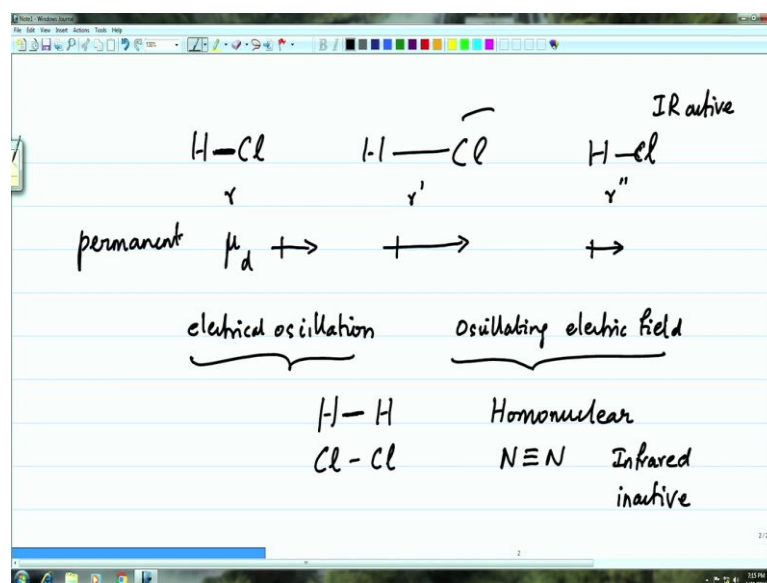 Note1 - Windows Journal
File Edit View Insert Actions Tools Help
IR active
H-Cl H-Cl H-Cl
r r' r"
permanent μd
electrical oscillation Oscillating electric field
H-H Homonuclear
Cl-Cl N≡N Infrared
inactive
2
7:15 PM